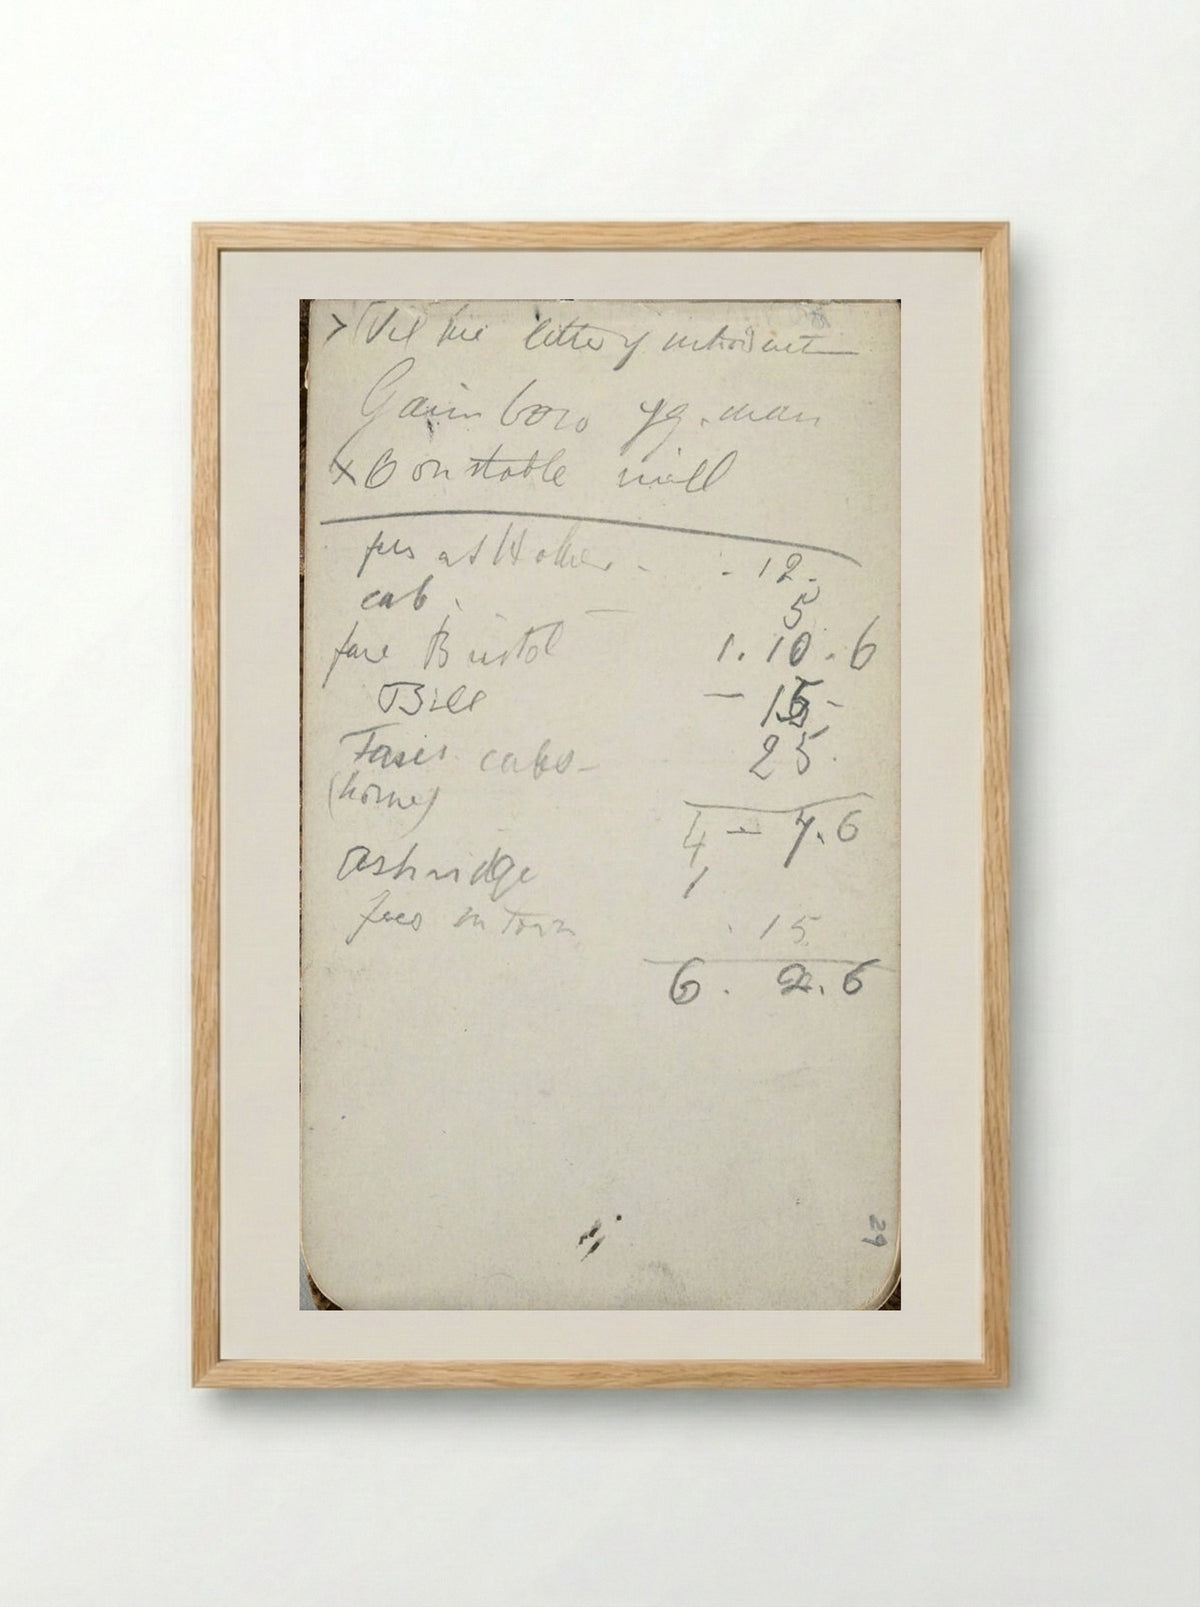 letter of introduct
Gainboro yg. man
x Constable mill
fees at Holker - - 12 -
cab. - 5
fare Bristol 1. 10. 6
Bill - 15 -
Fares cabs - 25.
(home)
4 - 7. 6
Ashridge 1
fees in Town . 15
6. 2. 6
29